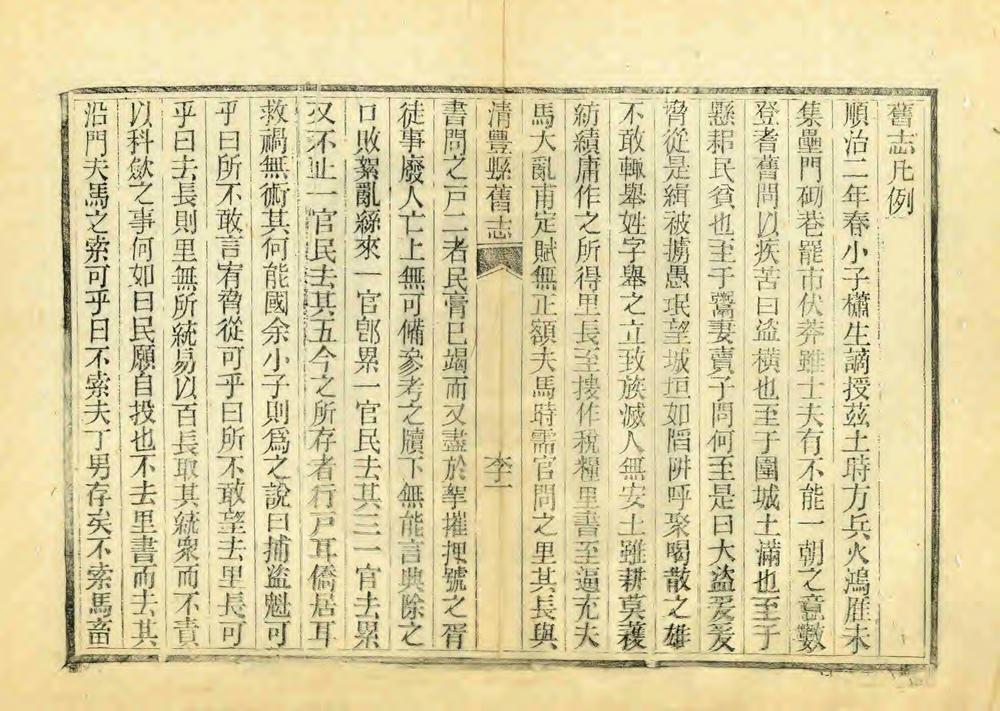 舊志凡例
順治二年春小子櫹生謫授茲土時方兵火鴻雁未
集壘門砌巷罷市伏莽雖士夫有不能一朝之意數
登耆舊問以疾苦曰盜橫也至于圍城土滿也至于
懸耜民貧也至于鬻妻賣子問何至是曰大盜爰爰
脅從是緝被擄愚氓望城垣如陷阱呼聚喝散之雄
不敢輒舉姓字舉之立致族滅人無安土雖耕莫穫
紡績庸作之所得里長至摟作稅糧里書至逼充夫
馬大亂甫定賦無正額夫馬時需官問之里其長與
清豐縣舊志
李一
書問之戸二者民膏已竭而又盡於挐摧押號之胥
徒事廢人亡上無可備參考之牘下無能言典除之
口敗絮亂絲來一官郎累一官民去其三一官去累
又不止一官民去其五今之所存者行戸耳僑居耳
救禍無術其何能國余小子則爲之說曰捕盜魁可
乎曰所不敢言宥脅從可乎曰所不敢望去里長可
乎曰去長則里無所統易以百長取其統衆而不責
以科歛之事何如曰民願自投也不去里書而去其
沿門夫馬之索可乎曰不索夫丁男存矣不索馬畜